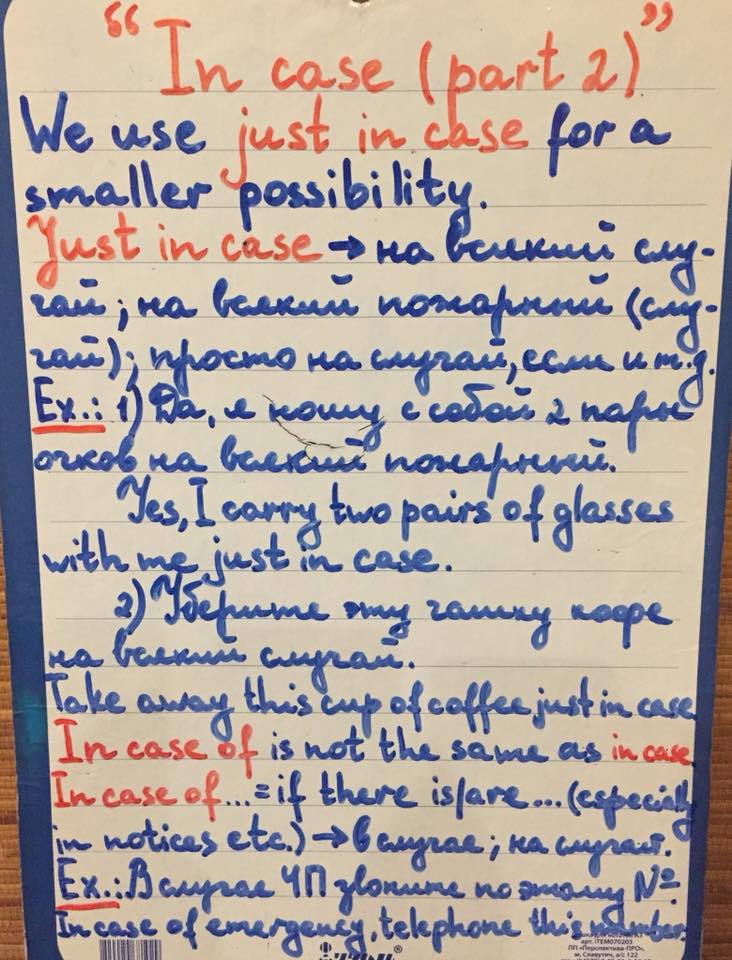 “In case (part 2)”
We use just in case for a
smaller possibility.
Just in case → на всякий слу-
чай; на всякий пожарный (слу-
чай); просто на случай, если и т.д.
Ex.: 1) Да, я ношу с собой 2 пары
очков на всякий пожарный.
Yes, I carry two pairs of glasses
with me just in case.
2) Уберите эту чашку кофе
на всякий случай.
Take away this cup of coffee just in case
In case of is not the same as in case
In case of... = if there is/are... (especially
in notices etc.) → в случае; на случай.
Ex.: В случае ЧП звоните по этому №.
In case of emergency, telephone this number.
арт. ITEM070203
ПП «Перспектива-ПРО»,
м. Славутич, а/с 122